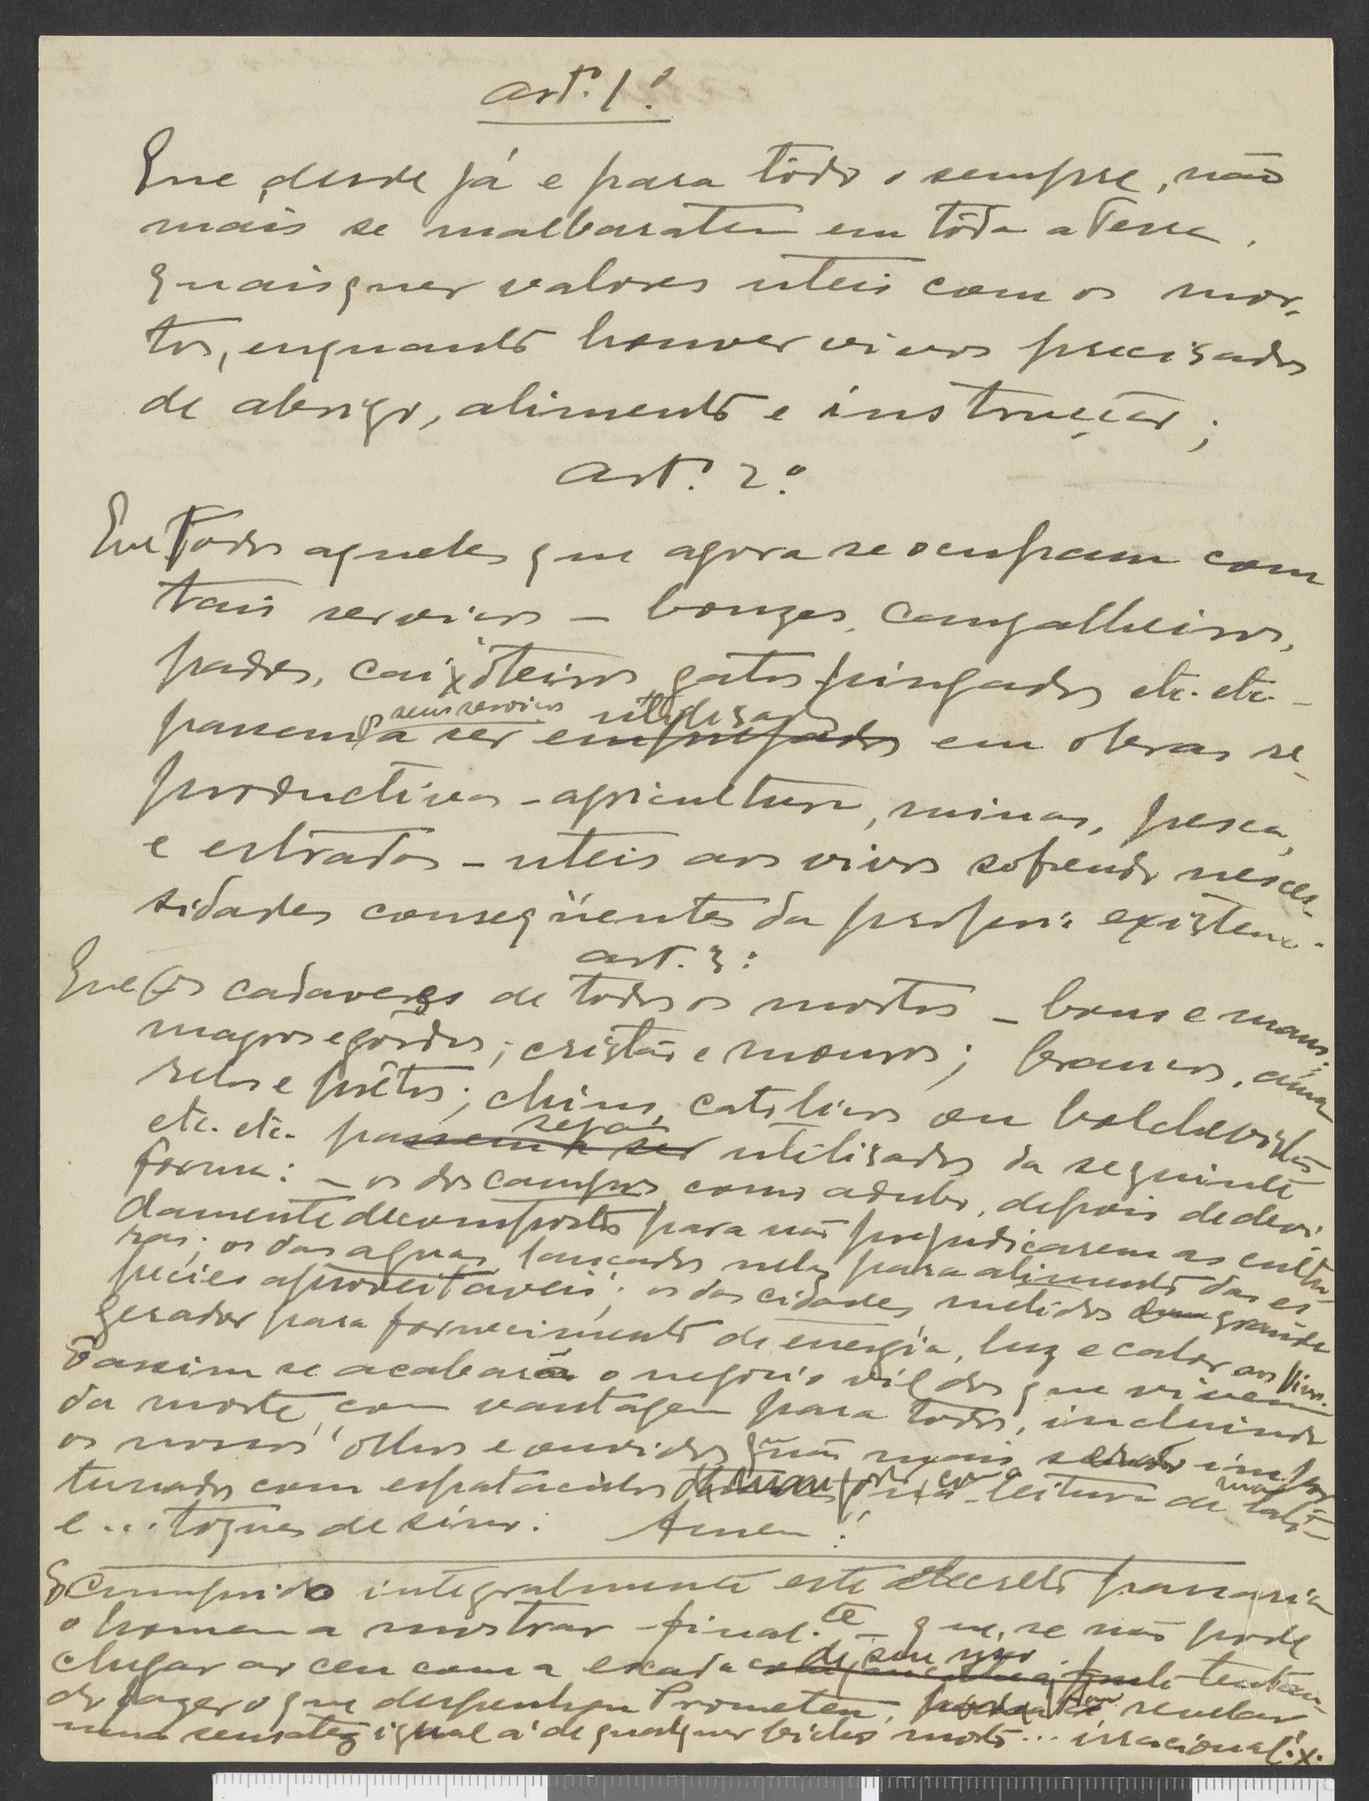 Art.º 1.º
Que desde já e para tôdo o sempre, não
mais se malbaratem em tôda a Terra,
quaisquer valores uteis com os mor-
tos, enquanto houver vivos precisados
de abrigo, alimento e instrucção;
Art.º 2.º
Que Todos aqueles que agora se ocupam com
tais serviços – bonzes, cangalheiros,
padres, caixoteiros, gatos-pingados etc. etc. –
passem os seus serviços a ser empregados utilisados em obras re-
productivas – agricultura, minas, pesca,
e estradas – uteis aos vivos sofrendo nesces-
sidades conseqüentes da propria existencia.
Art. 3.º
Que os cadaveres de todos os mortos – bons e maus;
magros e gôrdos; cristãos e mouros; brancos, ama-
relos e prêtos; chins, catolicos ou bolchevistas
etc. etc. passem a ser sejam utilisados da seguinte
forma: – os dos campos, como adubo, depois de devi-
damente decompostos para não prejudicarem as cultu-
ras; os das aguas, lançados nelas para alimento das es-
pécies aproveitaveis; os das cidades metidos grande
gerador para fornecimento de energia, luz e calor aos vivos.
E assim se acabará o negocio vil dos que vivem
da morte, com vantagem para todos, incluindo
os nossos olhos e ouvidos q. não mais serão impor-
tunados com espetaculos leitura de
e ... toques de sino. Amen!
E cumprido integralmente este decreto passaria
o homem a mostrar final.te – que, se não pode
chegar ao ceu com a escada de seu uso, tentan-
do fazer o que despenhou Prometeu, revelar
uma sensatez igual á de qualquer bicho morto... irracional. x.